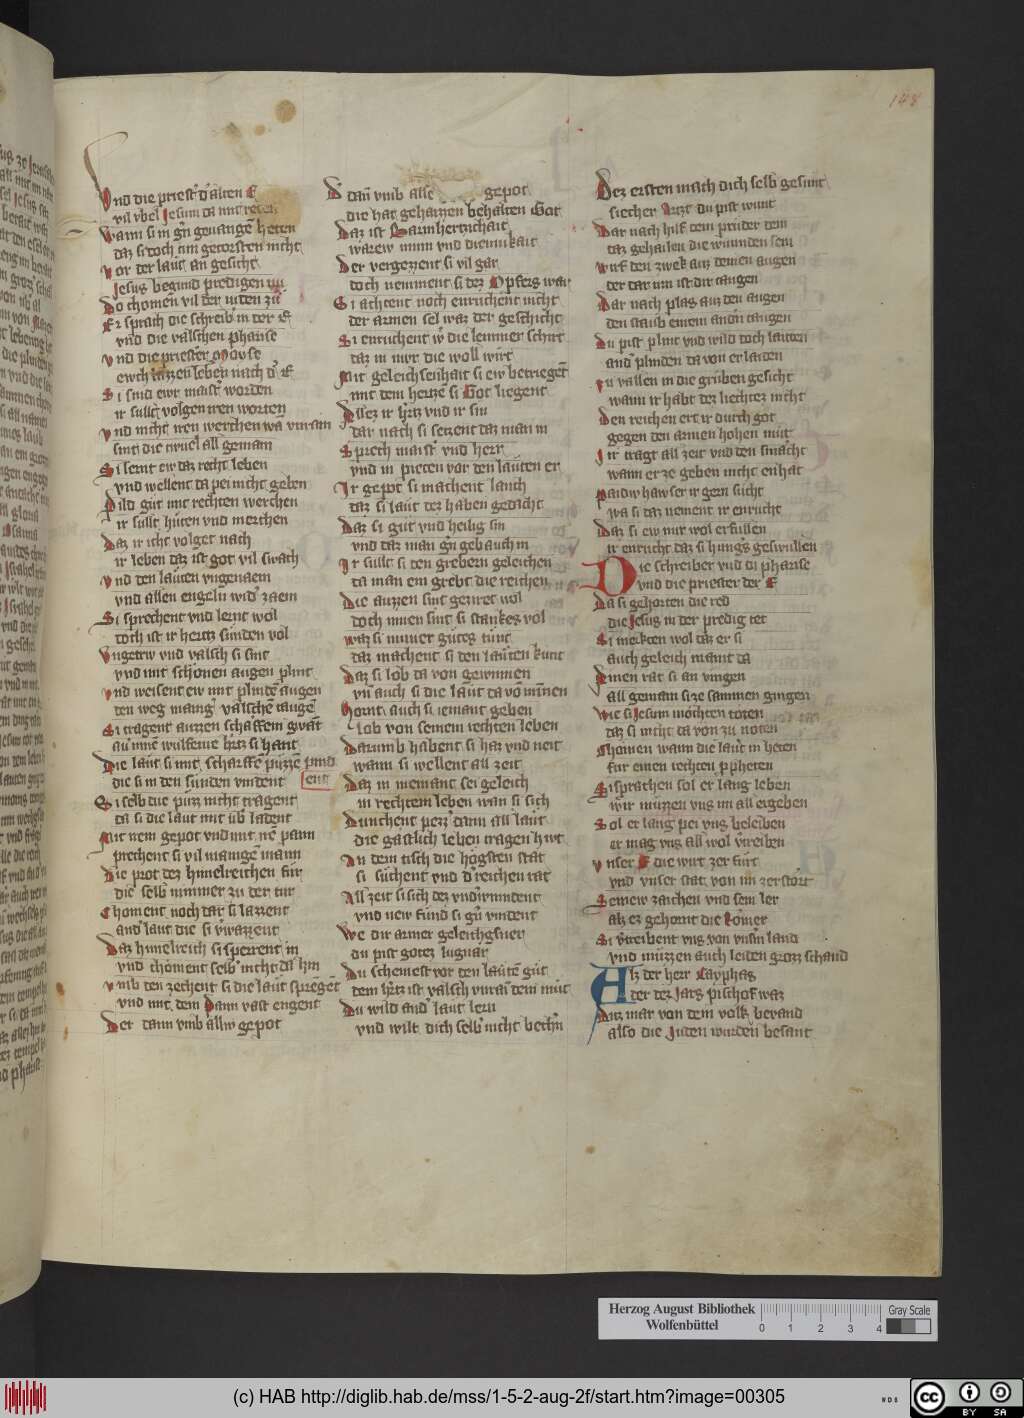 148
Vnd die priest' d' alten E
vil vbel Jesum da mit
Wann si in gn̄ geuangē hetten
daz si doch nm getorsten nicht
vor der laūt an gesicht
Jesus begund predigen
Do chomen vil der iuden zū
Er sprach die schreib' in der E
vnd die valschen pharise
vnd die priester Moyse
ewch lazzen leben nach d' E
Si sind ewr maist' worden
ir sullt volgen iren worten
vnd nicht iren werchen wā vmsam
sint die tiwuel all gemain
Si lernt ew daz recht leben
vnd wellent da pei nicht geben
Pild gūt mit rechten werchen
ir sullt hūten vnd merchen
Daz ir icht volget nach
ir leben daz ist got vil swach
vnd den laūten vngenaem
vnd allen engeln wid' zaem
Si sprechent vnd lernt wol
doch ist ir hertz sūnden vol
Vngetrw vnd valsch si sint
vnd mit schonen augen plint
vnd weisent ew mit plindē augen
den weg maing' valschē taugē
Si tragent auzzen schaffein gwāt
an innē wulfeine h'tz si hant
Die laūt si mit scharffē pūzzē pind
die si in den sūnden vindent
ent
Si selb die pūz nicht tragent
da si die laūt mit ūb' ladent
Mit nem gepot vnd mit nē pann
prechent si vil manigē mann
Die prot dez himelreichen fūr
die selb nimmer zu der tūr
Choment noch dar si lazzent
and' laūt die si v'wazzent
Daz himelreich si sperrent in
vnd choment selb' nicht da hin
vmb den zechent si die laūt spreget
vnd mit dem Pann vast engent
Der dann vmb allw gepot
D' dan vmb alle gepot
die hat gehaizzen behalten Got
Daz ist Barmhertzichait
warew minn vnd diemūkait
Der vergezzent si vil gar
doch nemment si dez Opfers war
Si achtent noch enruchent nicht
der armen sel waz der geschicht
Si enruchent w' die lemmer schirt
daz in nwr die woll wirt
Mit geleichsenhait si ew betriegēt
mit dem hertzē si Got liegent
Allez ir h'tz vnd ir sin
dar nach si setzent daz man in
Sprech maist' vnd herr
vnd in pieten vor den laūten er
Ir gepot si machent lanch
daz si laūt dez haben gedācht
Daz si gūt vnd heilig sin
vnd daz man gn̄ geb auch in
Ir sullt si den grebern geleichen
da man ein grebt die reichen
Die auzzen sint geziret wol
doch innen sint si stankes vol
Waz si nimmer gūtes tūnt
daz machent si den laūten kunt
Daz si lob da von gewinnen
vn̄ auch si die laūt da vō minnen
Hornt auch si iemant geben
lob von seinem rechten leben
Darumb habent si haz vnd neit
wann si wellent all zeit
Daz in niemant sei geleich
in rechtem leben wan si sich
Dunchent pezz' dann all laūt
die gaistlich leben tragen hiwt
An dem tisch die hōgsten stat
si sūchent vnd d' reichen rat
All zeit si sich dez vnd'windent
vnd new fūnd si gn̄ vindent
We dir armer geleichgsner
du pist gotez lugnar
Du schemest vor den laūtē gūt
dem h'tz ist valsch vnraī dem mūt
Du wild and' laūt lern
vnd wilt dich selb nicht bech'n
Dez ersten mach dich selb gesunt
siecher Artzt du pist wunt
Dar nach hilf dem prūder dein
daz gehailen die wunden sein
Wirf den zwek auz deinen augen
der dar inn ist dir taugen
Dar nach plas auz den augen
den staub einem andn̄ taugen
Du pist plint vnd wild doch laiten
and' plinden da von er laiden
in vallen in die grūben gesicht
wann ir habt dez liechtez nicht
Den reichen ert ir durch got
gegen den armen hohen mūt
Ir tragt all zeit vnd den smācht
wann er ze geben nicht enhat
Paidiw hawser ir gern sūcht
wa si daz nement ir enrucht
Daz si ew nur wol erfullen
ir enrucht daz si hung's geswullen
Die schreiber vnd di pharise
vnd die priester der E
Da si gehorten die red
die Jesus in der predig tet
Si merkten wol daz er si
auch geleich maint da
Einen rat si an viengen
all gemain si ze sammen gingen
Wie si Jesum mōchten tōten
daz si nicht da von zu nōten
Chomen wann die laūt in heten
fur einen rechten ppheten
Si sprachen sol er lang leben
wir mūzzen vns im all ergeben
Sol er lang pei vns beleiben
er mag vns all wol v'treiben
vnser E die wirt zer fūrt
vnd vnser stat von im zerstōrt
Seinew zaichen vnd sein ler
alz ez gehornt die Rōmer
Si v'treibent vns von vnsm̄ land
vnd mūzzen auch leiden grozz schand
Alz der herr Cayphas
der dez Jars pischof waz
Diz mār von dem volk bevand
also die Juden wurden besant
Herzog August Bibliothek
Wolfenbüttel
0 1 2 3 4
Gray Scale
(c) HAB http://diglib.hab.de/mss/1-5-2-aug-2f/start.htm?image=00305
WDB
cc BY SA